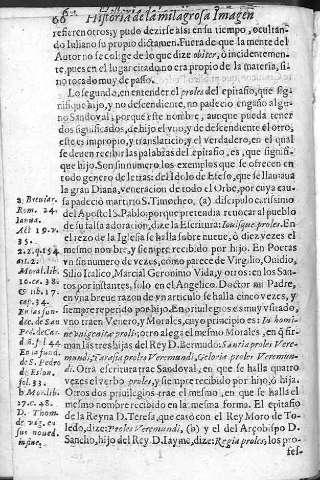 66 Historia de la milagrosa Imagen
refieren otros, y pudo dezirse assi en su tiempo, ocultan-
do Iuliano su propio dictamen. Fuera de que la mente del
Autor no se colige de lo que dize obiter, ò incidentemen-
te, pues en el lugar citado, no era propio de la materia, si-
no tocado muy de passo.
Lo segundo, en entender el proles del epitafio, que sig-
nifique hijo, y no descendiente, no padeciò engaño algu-
no Sandoval; porque este nombre, aunque pueda tener
dos significados, de hijo el vno, y de descendiente el otro,
este es impropio, y translaticio, y el verdadero, en el qual
se deuen recibir las palabras del epitafio, es, que signifi-
que hijo. Son sin numero los exemplos que se ofrecen en
todo genero de letras: del Idolo de Efeso, que se llamaua
la gran Diana, veneracion de todo el Orbe, por cuya cau-
sa padeciò martirio S. Timotheo, (a) discipulo carissimo
del Apostol S. Pablo, porque pretendia reuocar al pueblo
de su falsa adoracion, dize la Escritura: Iovisque proles. En
el rezo de la Iglesia se halla sobre nueue, ò diez vezes el
mesmo nombre, y siempre recibido por hijo. En Poetas
vn sin numero de vezes, como parece de Virgilio, Ouidio,
Silio Italico, Marcial, Geronimo Vida, y otros: en los San-
tos por instantes, solo en el Angelico Doctor mi Padre,
en vna breue razon de vn articulo se halla cinco vezes, y
siempre repetido por hijo. En priuilegios es muy vsitado,
vno traen Venero, y Morales, cuyo principio es: In nomi-
ne vnigenitae prolis; otro alega el mesmo Morales, en q̃ fir-
man las tres hijas del Rey D. Bermudo: Sancia proles Vere-
mundi, Tarasia proles Veremundi, Geloira proles Veremun-
di. Otra escritura trae Sandoval, en que se halla quatro
vezes el verbo proles, y siempre recibido por hijo, ò hija.
Otros dos priuilegios trae el mesmo, en que se halla el
mesmo nombre recibido en la mesma forma. El epitafio
de la Reyna D. Teresa, que casò con el Rey Moro de To-
ledo, dize: Proles Veremundi, (b) y el del Arçobispo D.
Sancho, hijo del Rey D. Iayme, dize: Regia proles, los pro-
fes-
a Breuiar.
Rom. 24.
Ianua.
Act. 19. v.
35.
2. 2. q. 154
Moral. lib.
10. ca. 38.
Et lib. 17.
cap. 34.
b Moral. lib.
17. c. 48.
D. Thom.